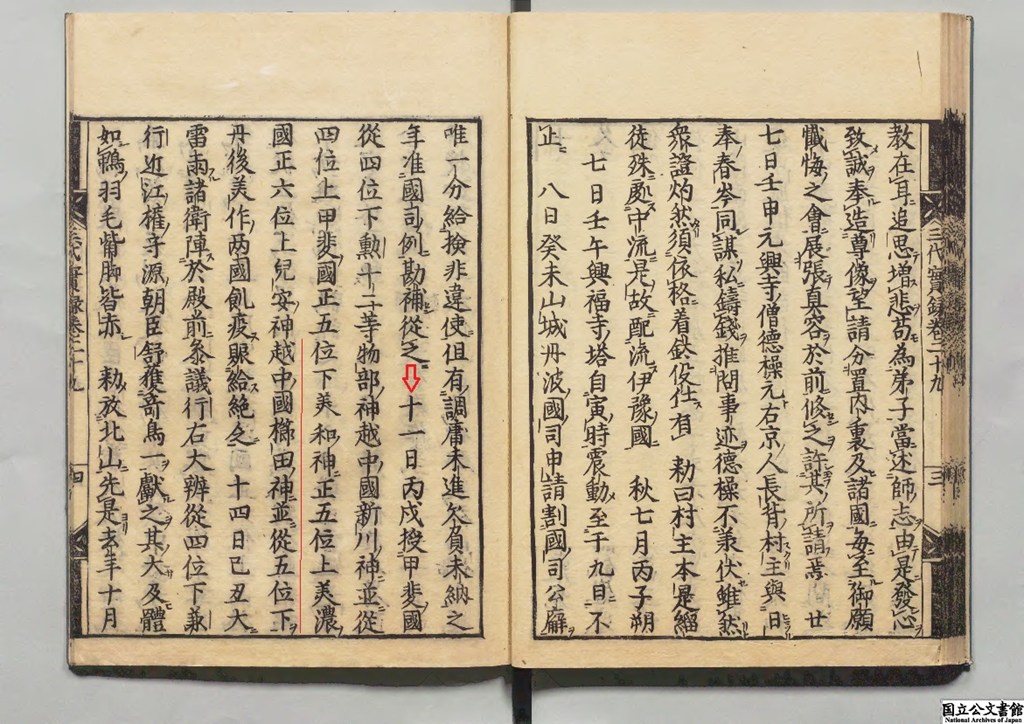 教在耳追思増悲苟為弟子當述師志由是發心
致誠奉造尊像望請分置内裏及諸國毎至御願
懴悔之會展張真容於前修之許其所請焉　廿
七日壬申元興寺僧德操元右京人長背村主與日
奉春岑同謀私鑄錢推問事迹德操不兼伏雖然
衆證灼然須依格着鈦役任有　勅曰村主本是緇
徒殊處中流是故配流伊豫國　秋七月丙子朔
七日壬午興福寺塔自寅時震動至于九日不
止　八日癸未山城丹波國司申請割國司公廨
三代實録卷二十九
三
唯一分給撿非違使但有調庸未進欠負未納之
年准國司例勘補從之　十一日丙戌授甲斐國
從四位下勲十二等物部神越中國新川神並從
四位上甲斐國正五位下美和神正五位上美濃
國正六位上兒安神越中國櫛田神並從五位下
丹後美作兩國飢疫賑給絶乏　十四日己丑大
雷雨諸衛陣於殿前叅議行右大辨從四位下兼
行近江權守源朝臣舒獲竒鳥一獻之其大及體
如鴨羽毛觜脚皆赤　勅放北山先是去年十月
三代實録卷二十九
四
国立公文書館
National Archives of Japan